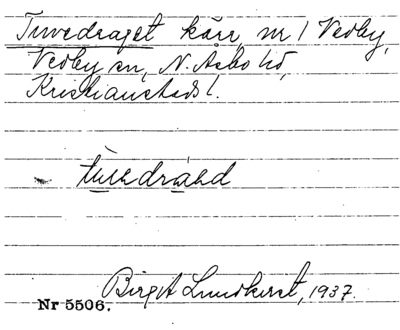 Tuvedraget kärr, nr 1 Vedby,
Vedby sn, N. Åsbo hd,
Kristianstads l.
Birgit Lundkvist, 1937.
Nr 5506.